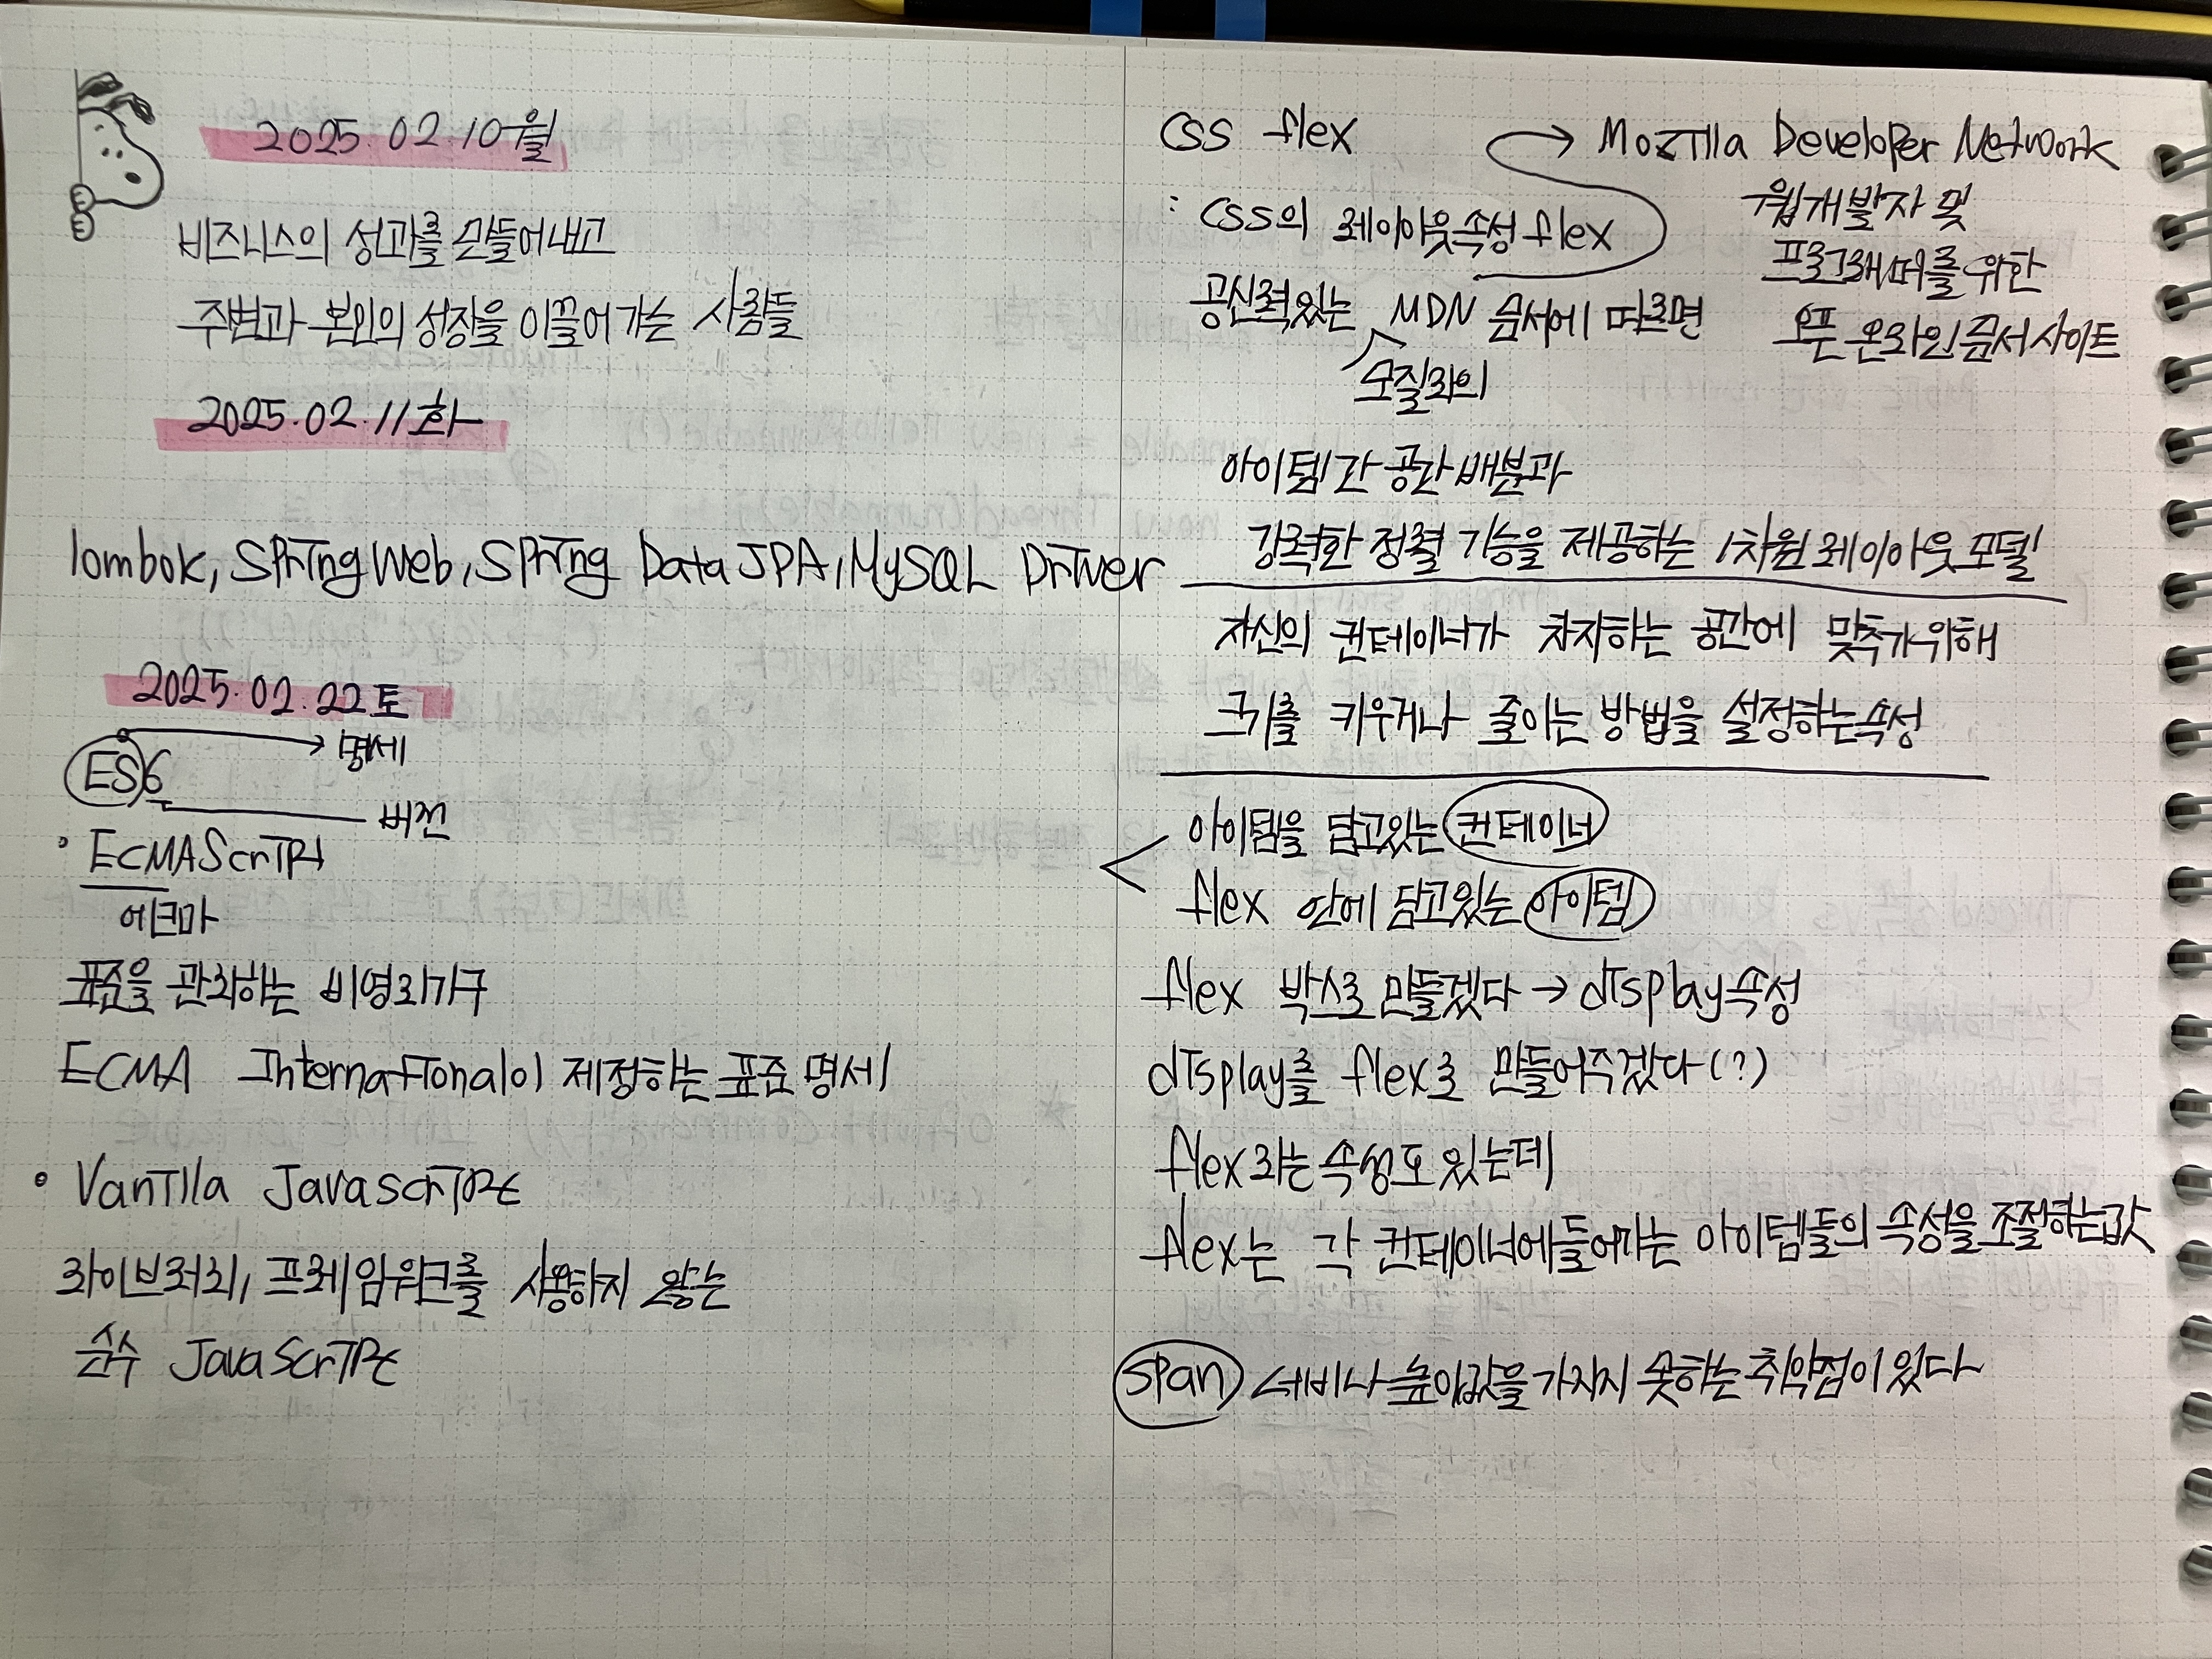 2025.02.10월
비즈니스의 성과를 만들어내고
주변과 본인의 성장을 이끌어가는 사람들
2025.02.11화
lombok, Spring Web, Spring Data JPA, MySQL Driver
2025.02.22토
명세
ES6
버전
ECMAScript
에크마
표준을 관리하는 비영리기구
ECMA International이 제정하는 표준 명세
Vanilla Javascript
라이브러리, 프레임워크를 사용하지 않는
순수 JavaScript
CSS flex
→ Mozilla Developer Network
웹개발자 및
프로그래머를 위한
오픈 온라인 문서 사이트
: CSS의 레이아웃속성 flex
공신력있는 MDN 문서에 따르면
모질라의
아이템 간 공간 배분과
강력한 정렬 기능을 제공하는 1차원 레이아웃 모델
자신의 컨테이너가 차지하는 공간에 맞추기위해
크기를 키우거나 줄이는 방법을 설정하는속성
아이템을 담고있는 컨테이너
flex 안에 담고있는 아이템
flex 박스로 만들겠다 → display속성
display를 flex로 만들어주겠다(?)
flex라는 속성도 있는데
flex는 각 컨테이너에들어가는 아이템들의 속성을 조절하는값
span 너비나 높이값을 가지지 못하는 취약점이 있다